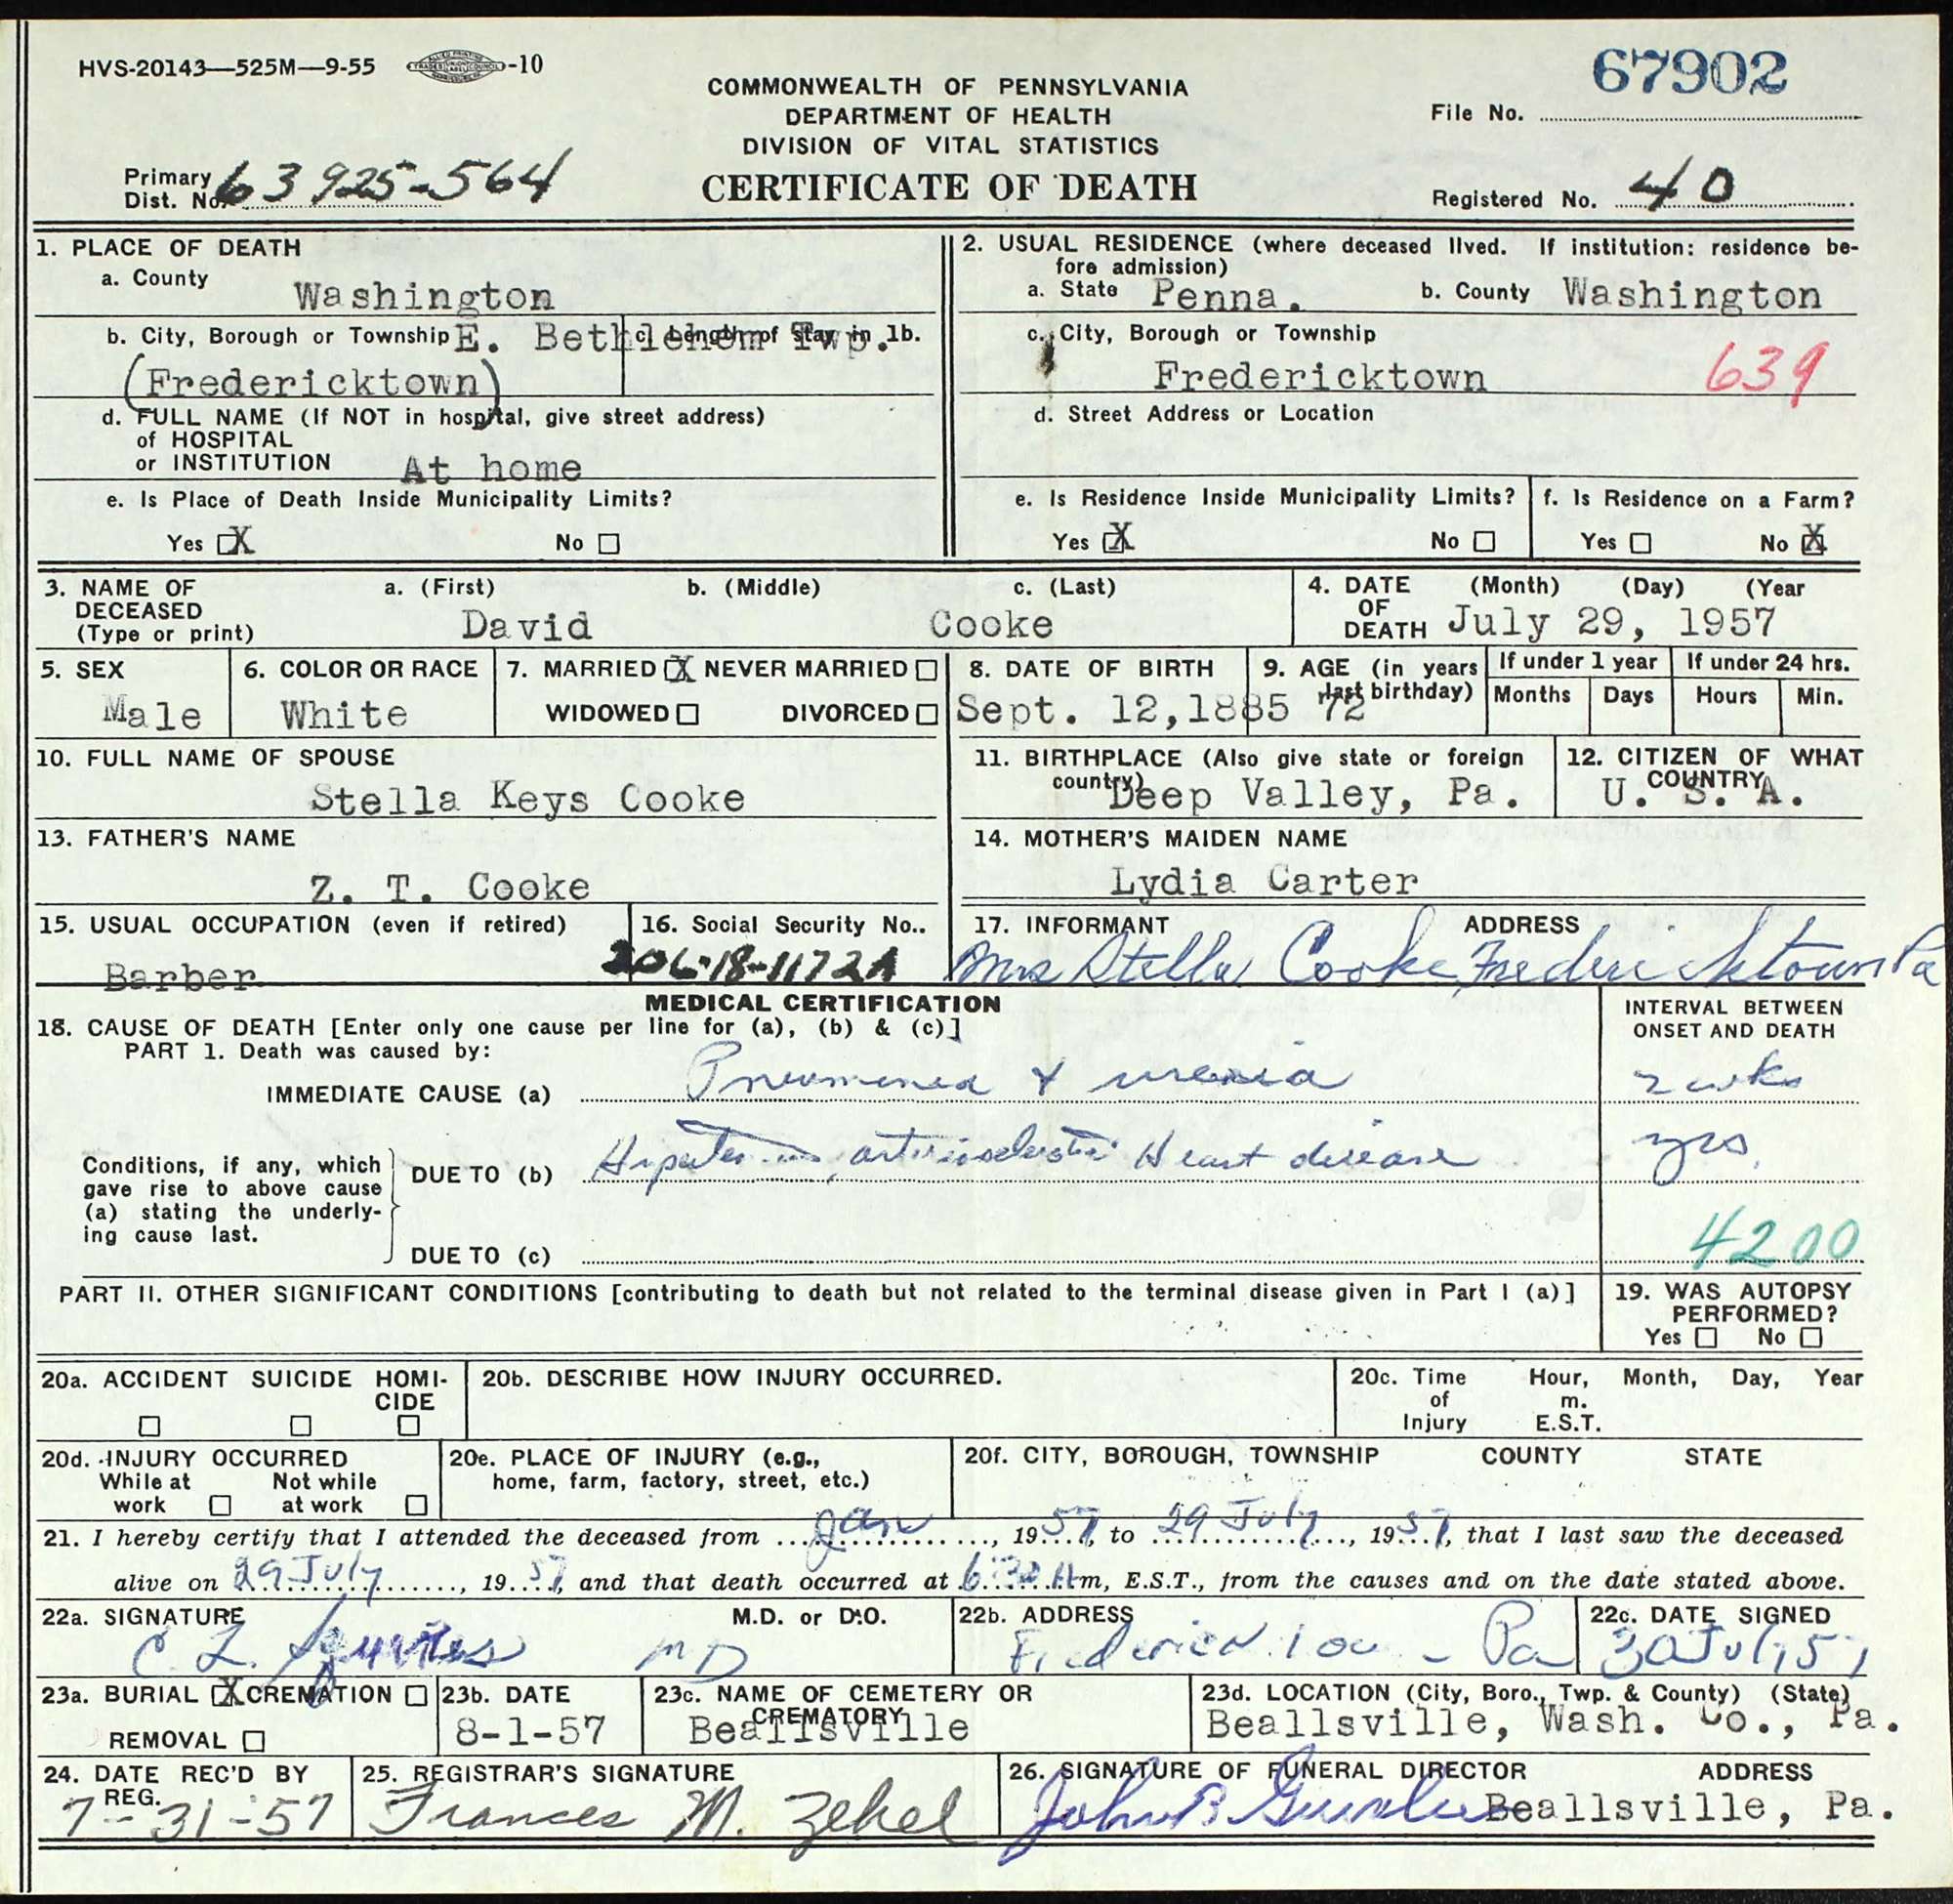 HVS-20143—525M—9-55 -10
67902
COMMONWEALTH OF PENNSYLVANIA
DEPARTMENT OF HEALTH
DIVISION OF VITAL STATISTICS
CERTIFICATE OF DEATH
File No.
Primary Dist. No. 63925-564
Registered No. 40
1. PLACE OF DEATH
a. County Washington
b. City, Borough or Township E. Bethlehem Twp.
c. Length of Stay in 1b.
(Fredericktown)
d. FULL NAME (If NOT in hospital, give street address)
of HOSPITAL
or INSTITUTION At home
e. Is Place of Death Inside Municipality Limits?
Yes X No
2. USUAL RESIDENCE (where deceased lived. If institution: residence be-
fore admission)
a. State Penna. b. County Washington
c. City, Borough or Township
Fredericktown 639
d. Street Address or Location
e. Is Residence Inside Municipality Limits? f. Is Residence on a Farm?
Yes X No Yes No X
3. NAME OF DECEASED (Type or print) a. (First) b. (Middle) c. (Last)
David Cooke
4. DATE OF DEATH (Month) (Day) (Year
July 29, 1957
5. SEX
Male
6. COLOR OR RACE
White
7. MARRIED X NEVER MARRIED
WIDOWED DIVORCED
8. DATE OF BIRTH
Sept. 12,1885
9. AGE (in years last birthday)
72
If under 1 year If under 24 hrs.
Months Days Hours Min.
10. FULL NAME OF SPOUSE
Stella Keys Cooke
11. BIRTHPLACE (Also give state or foreign country)
Deep Valley, Pa.
12. CITIZEN OF WHAT COUNTRY
U. S. A.
13. FATHER'S NAME
Z. T. Cooke
14. MOTHER'S MAIDEN NAME
Lydia Carter
15. USUAL OCCUPATION (even if retired)
Barber
16. Social Security No..
206-18-1172A
17. INFORMANT ADDRESS
Mrs Stella Cooke, Fredericktown Pa
MEDICAL CERTIFICATION
18. CAUSE OF DEATH [Enter only one cause per line for (a), (b) & (c)]
PART 1. Death was caused by:
INTERVAL BETWEEN
ONSET AND DEATH
IMMEDIATE CAUSE (a) Pneumonia & uremia 2 wks
Conditions, if any, which
gave rise to above cause
(a) stating the underly-
ing cause last.
DUE TO (b) arteriosclerotic Heart disease yrs.
DUE TO (c)
4200
PART II. OTHER SIGNIFICANT CONDITIONS [contributing to death but not related to the terminal disease given in Part I (a)]
19. WAS AUTOPSY
PERFORMED?
Yes No
20a. ACCIDENT SUICIDE HOMI-
CIDE
20b. DESCRIBE HOW INJURY OCCURRED.
20c. Time of Injury Hour, m. E.S.T. Month, Day, Year
20d. INJURY OCCURRED
While at work Not while at work
20e. PLACE OF INJURY (e.g.,
home, farm, factory, street, etc.)
20f. CITY, BOROUGH, TOWNSHIP COUNTY STATE
21. I hereby certify that I attended the deceased from Jan, 1957, to 29 July, 1957, that I last saw the deceased
alive on 29 July, 1957, and that death occurred at 6:30 A.m, E.S.T., from the causes and on the date stated above.
22a. SIGNATURE M.D. or D.O.
C. L. MD
22b. ADDRESS
Fredericktown - Pa
22c. DATE SIGNED
30 July 57
23a. BURIAL X CREMATION
REMOVAL
23b. DATE
8-1-57
23c. NAME OF CEMETERY OR CREMATORY
Beallsville
23d. LOCATION (City, Boro., Twp. & County) (State)
Beallsville, Wash. Co., Pa.
24. DATE REC'D BY REG.
7-31-57
25. REGISTRAR'S SIGNATURE
Frances M. Zebel
26. SIGNATURE OF FUNERAL DIRECTOR ADDRESS
John B Beallsville, Pa.